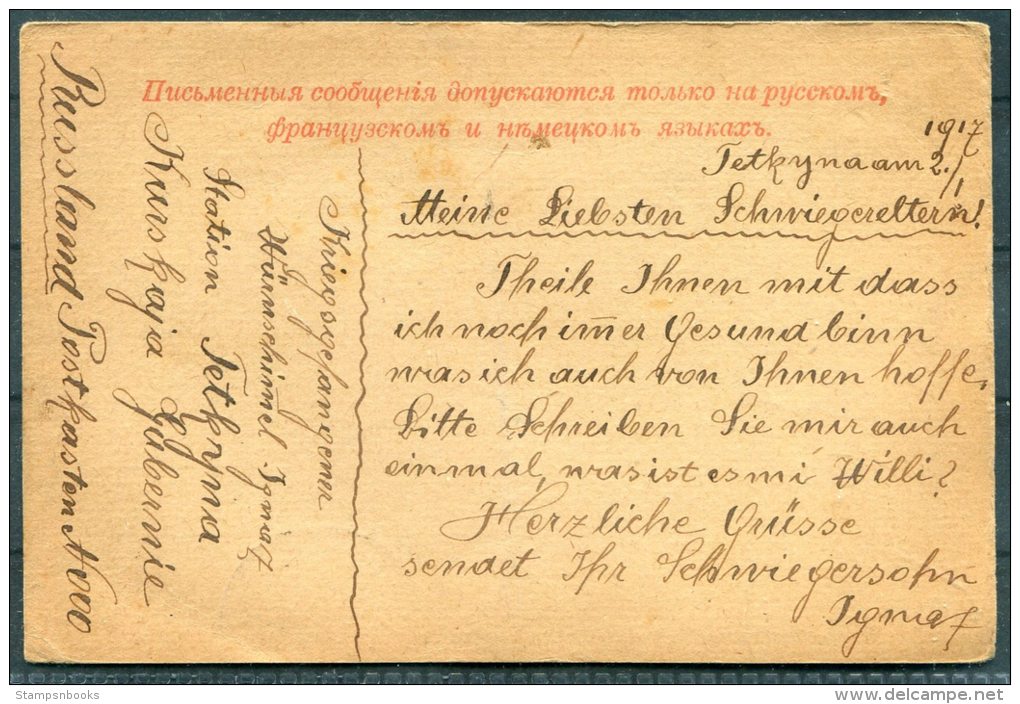 Письменныя сообщенія допускаются только на русскомъ,
французскомъ и нѣмецкомъ языкахъ.
1917
Tetkyna am 2./1
Meine Liebsten Schwiegereltern!
Theile Ihnen mit dass
ich noch im̅er Gesund binn
was ich auch von Ihnen hoffe.
Bitte Schreiben Sie mir auch
einmal, was ist es mi Willi?
Herzliche Grüsse
sendet Ihr Schwiegersohn
Ignaz
Kriegsgefangener
Würnschimel Ignaz
Station Tetkyna
Kurskaja Gubernie
Russland Postkasten No
Stampsnbooks
www.delcampe.net